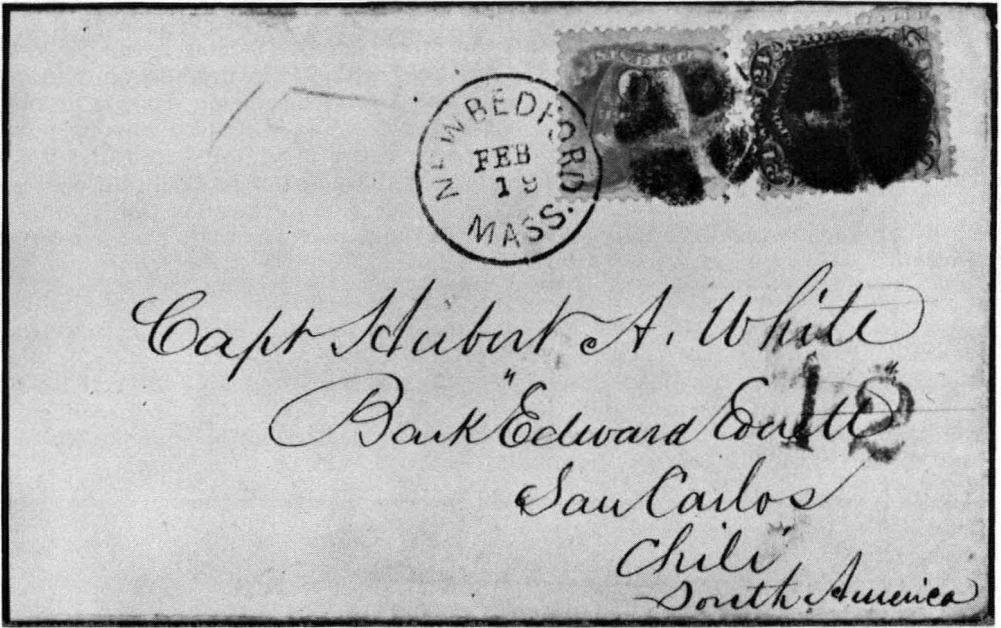 NEW BEDFORD
FEB
19
MASS.
Capt Hubert A. White
Bark "Edward Everett"
12
San Carlos
Chili
South America